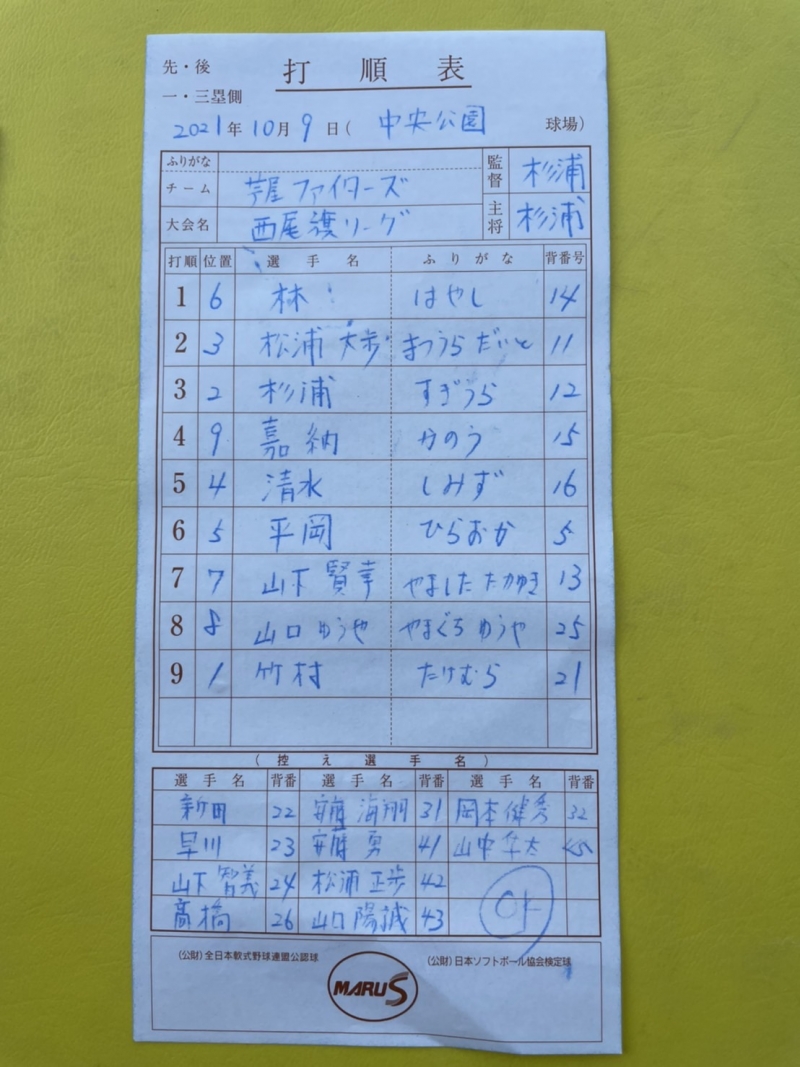 先・後 打順表
一・三塁側
2021年10月9日(中央公園 球場)
ふりがな 監督 杉浦
チーム 芋屋ファイターズ
大会名 西尾濃リーグ 主将 杉浦
打順 位置 選手名 ふりがな 背番号
1 6 林 はやし 14
2 3 松浦 大歩 まつうら だいと 11
3 2 杉浦 すぎうら 12
4 9 嘉納 かのう 15
5 4 清水 しみず 16
6 5 平岡 ひらおか 5
7 7 山下 賢幸 やました たかゆき 13
8 8 山口 ゆうや やまぐち ゆうや 25
9 1 竹村 たけむら 21
(控え選手名)
選手名 背番 選手名 背番 選手名 背番
新田 22 安藤 海翔 31 岡本健秀 32
早川 23 安藤 勇 41 山中 太 45
山下 智義 24 松浦 正歩 42
高橋 26 山口 陽誠 43
(公財)全日本軟式野球連盟公認球 (公財)日本ソフトボール協会検定球
MARUS